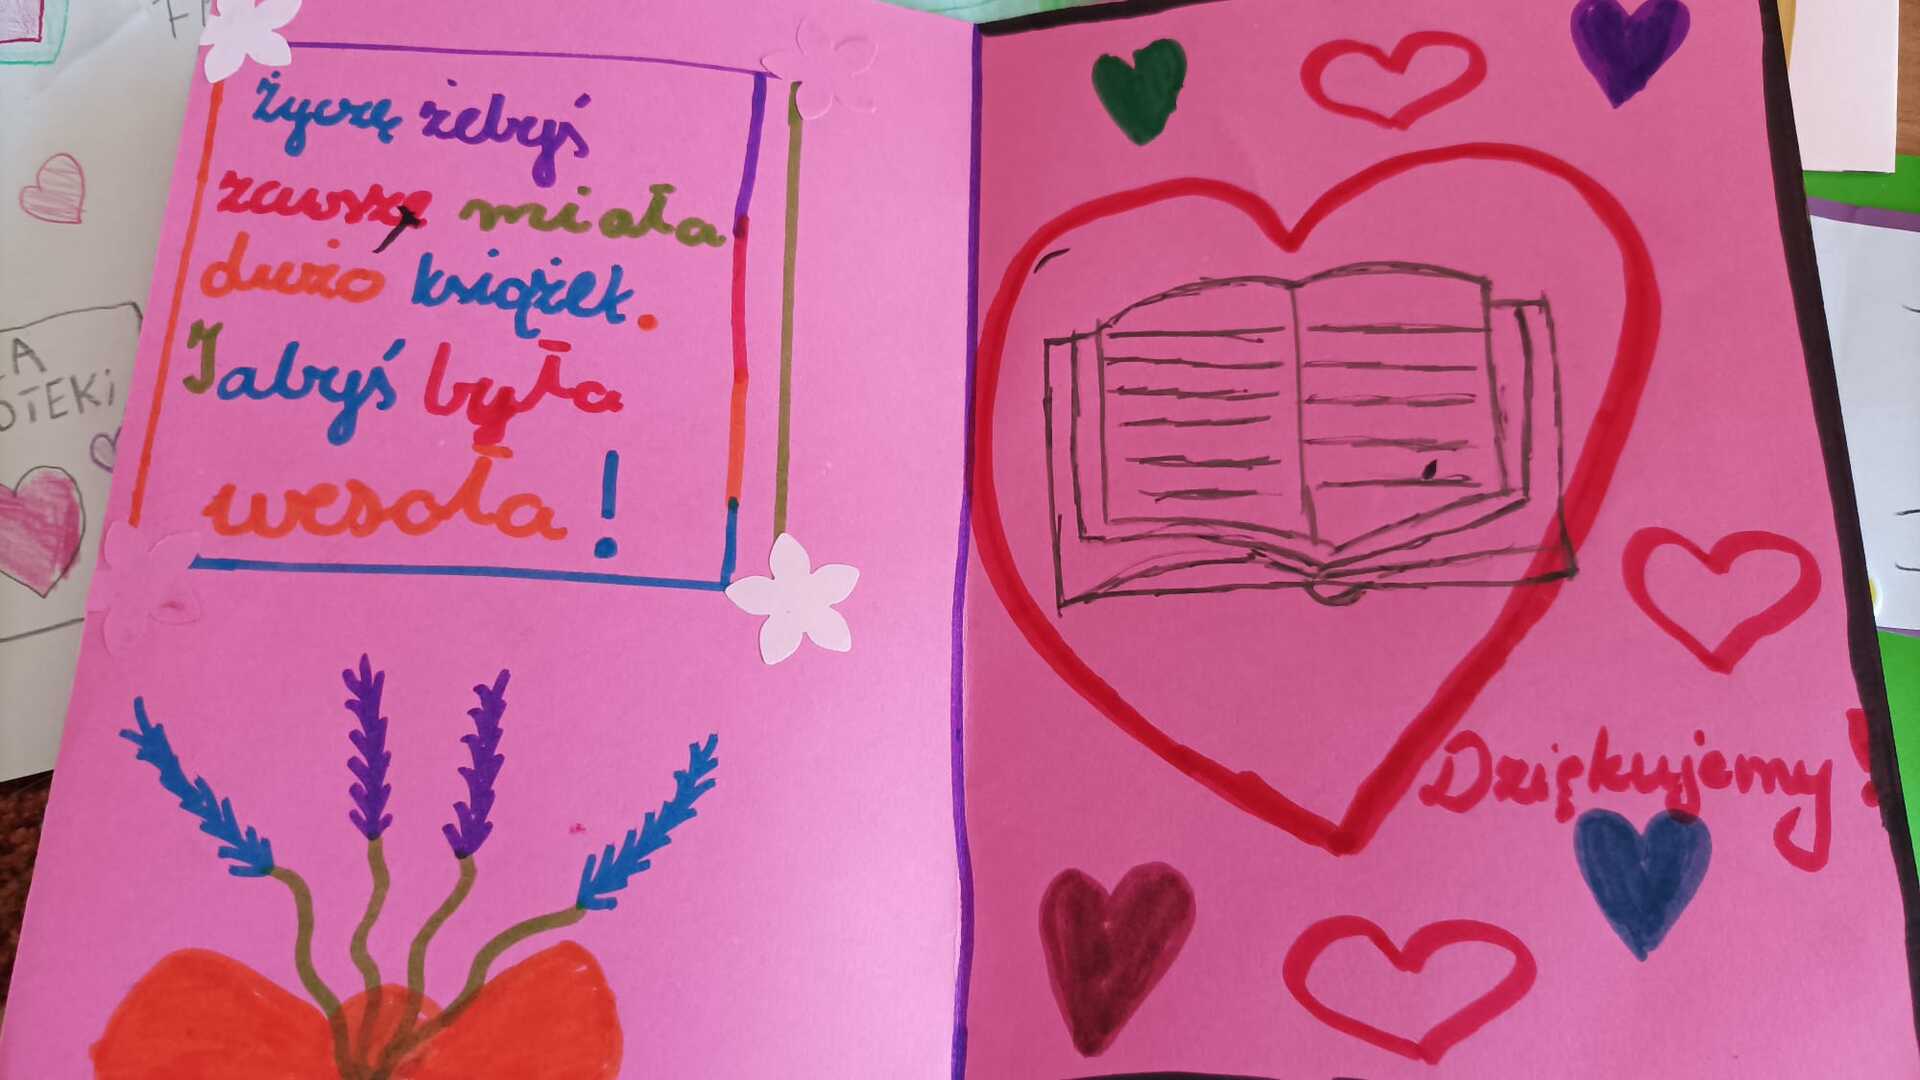 Życzę żebyś
zawsze miała
dużo książek.
I abyś była
wesoła!
Dziękujemy!